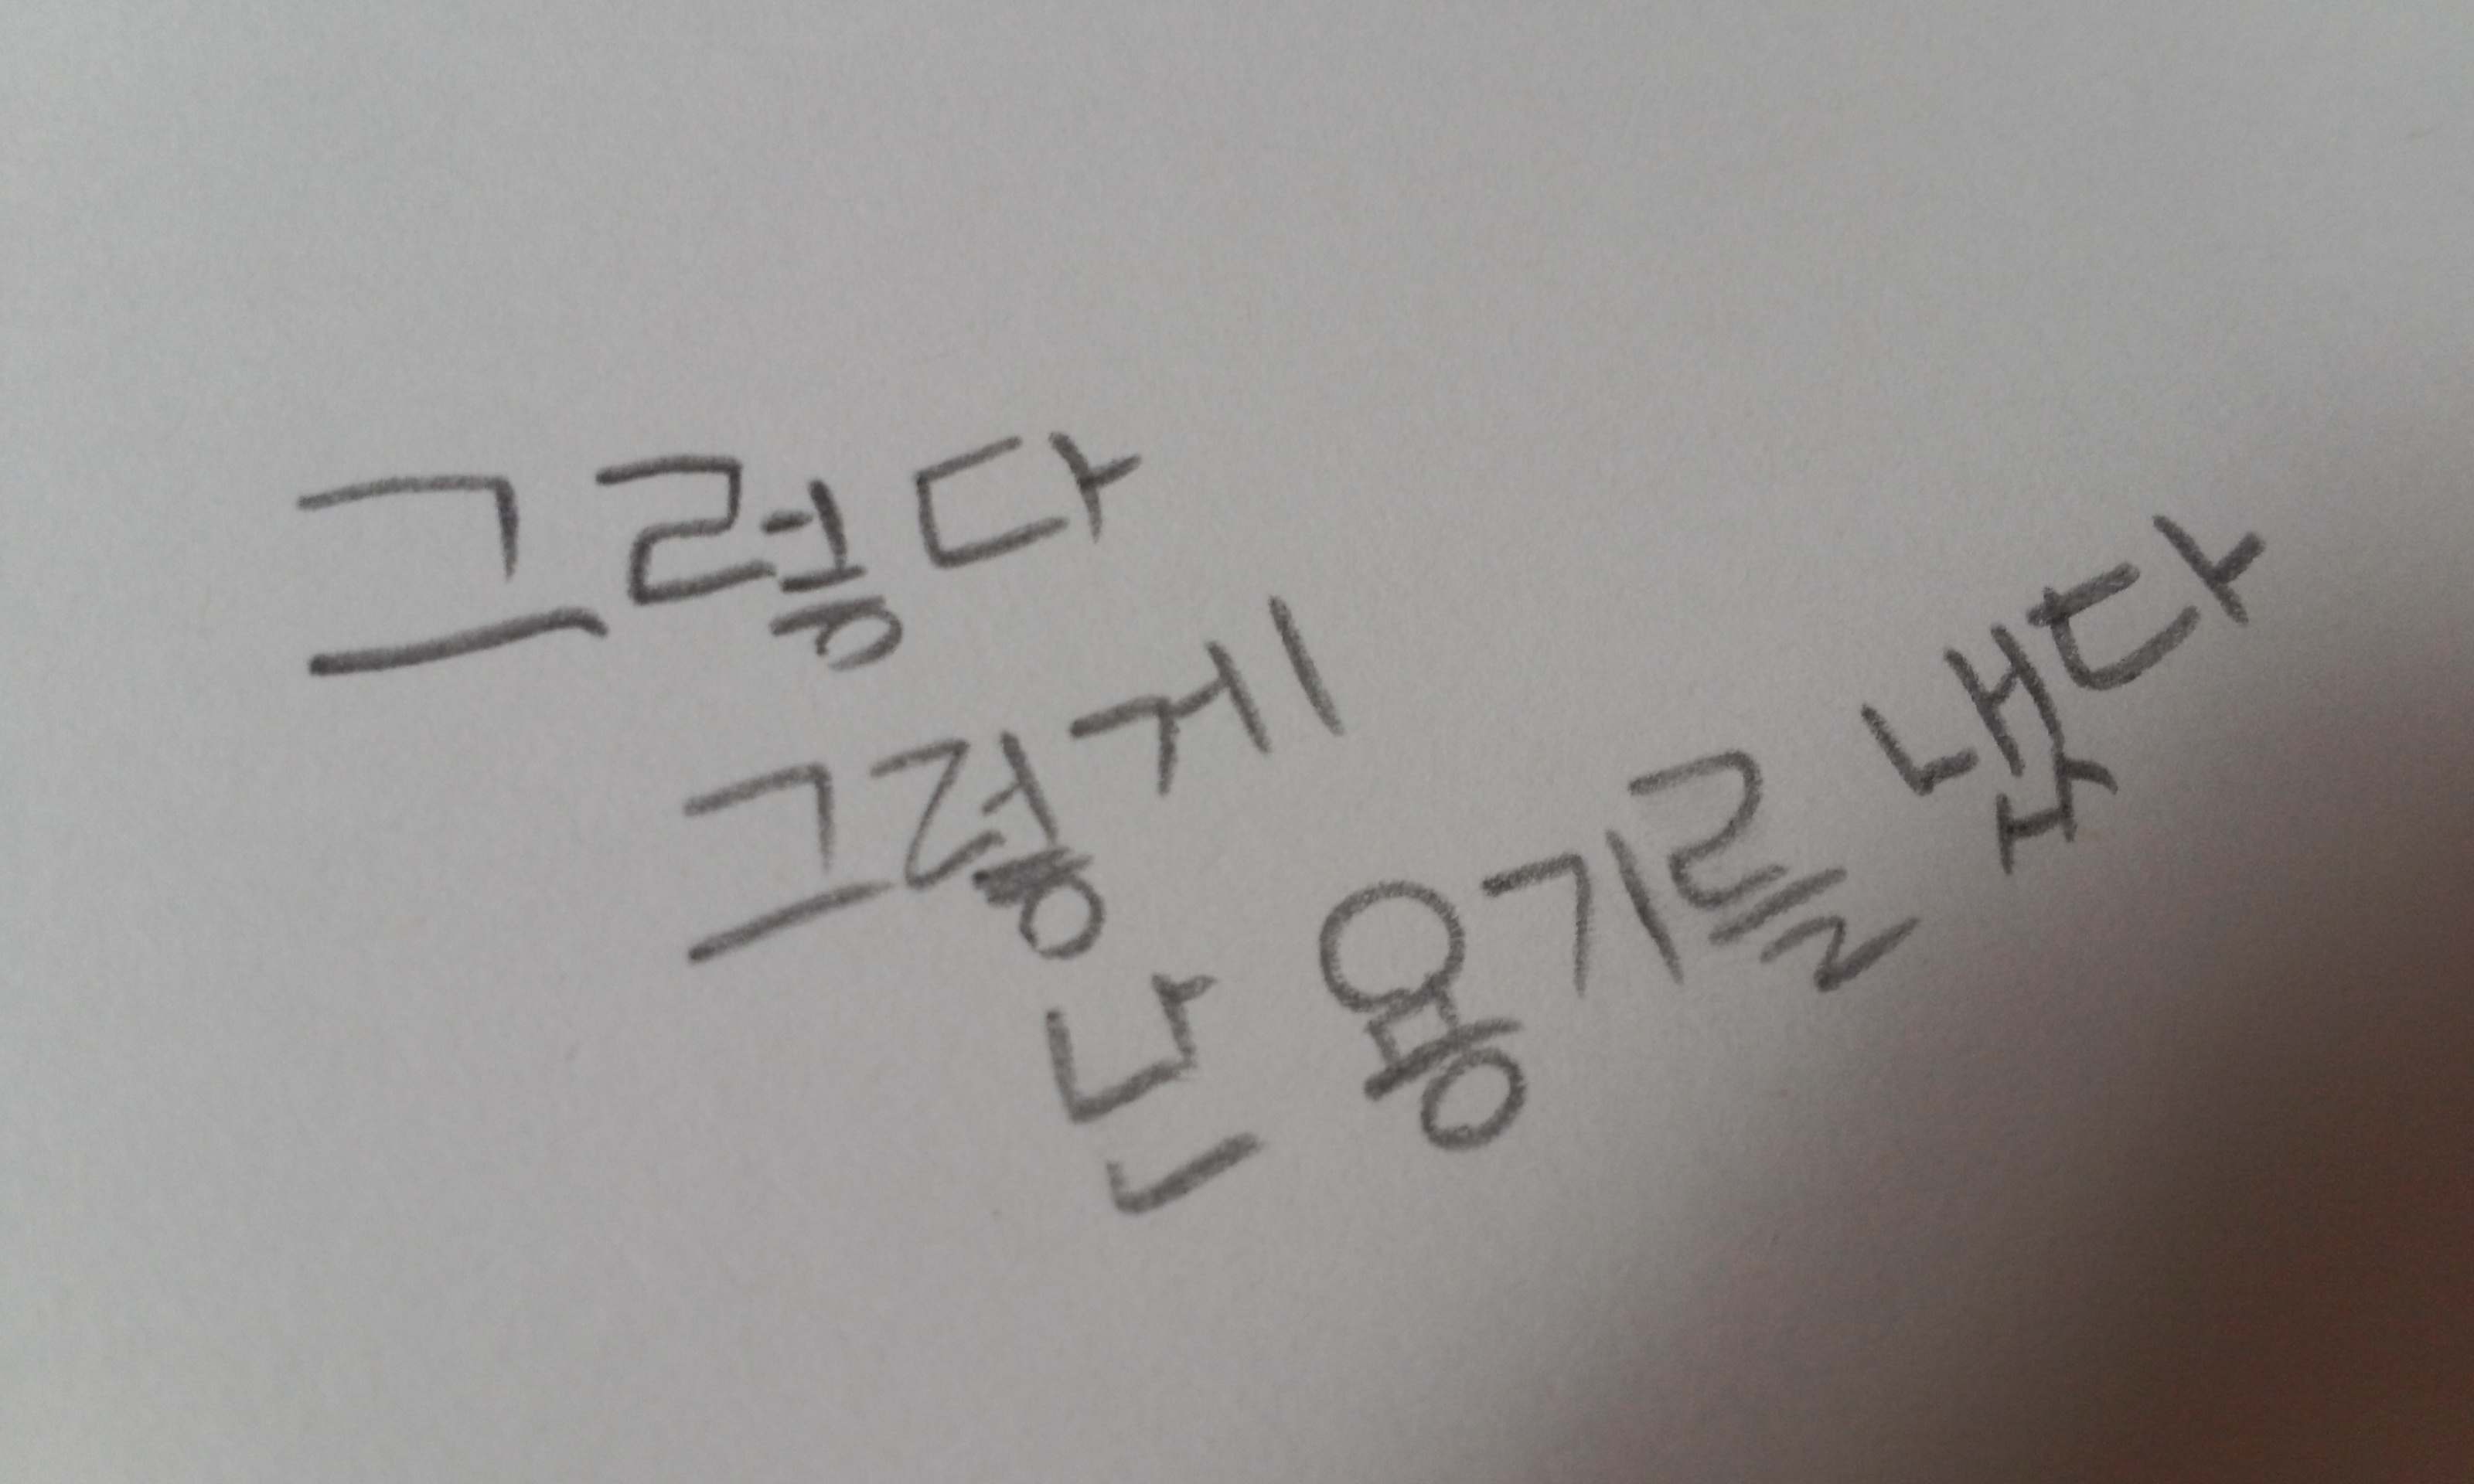 그렇다
그렇게
난 용기를 냈다